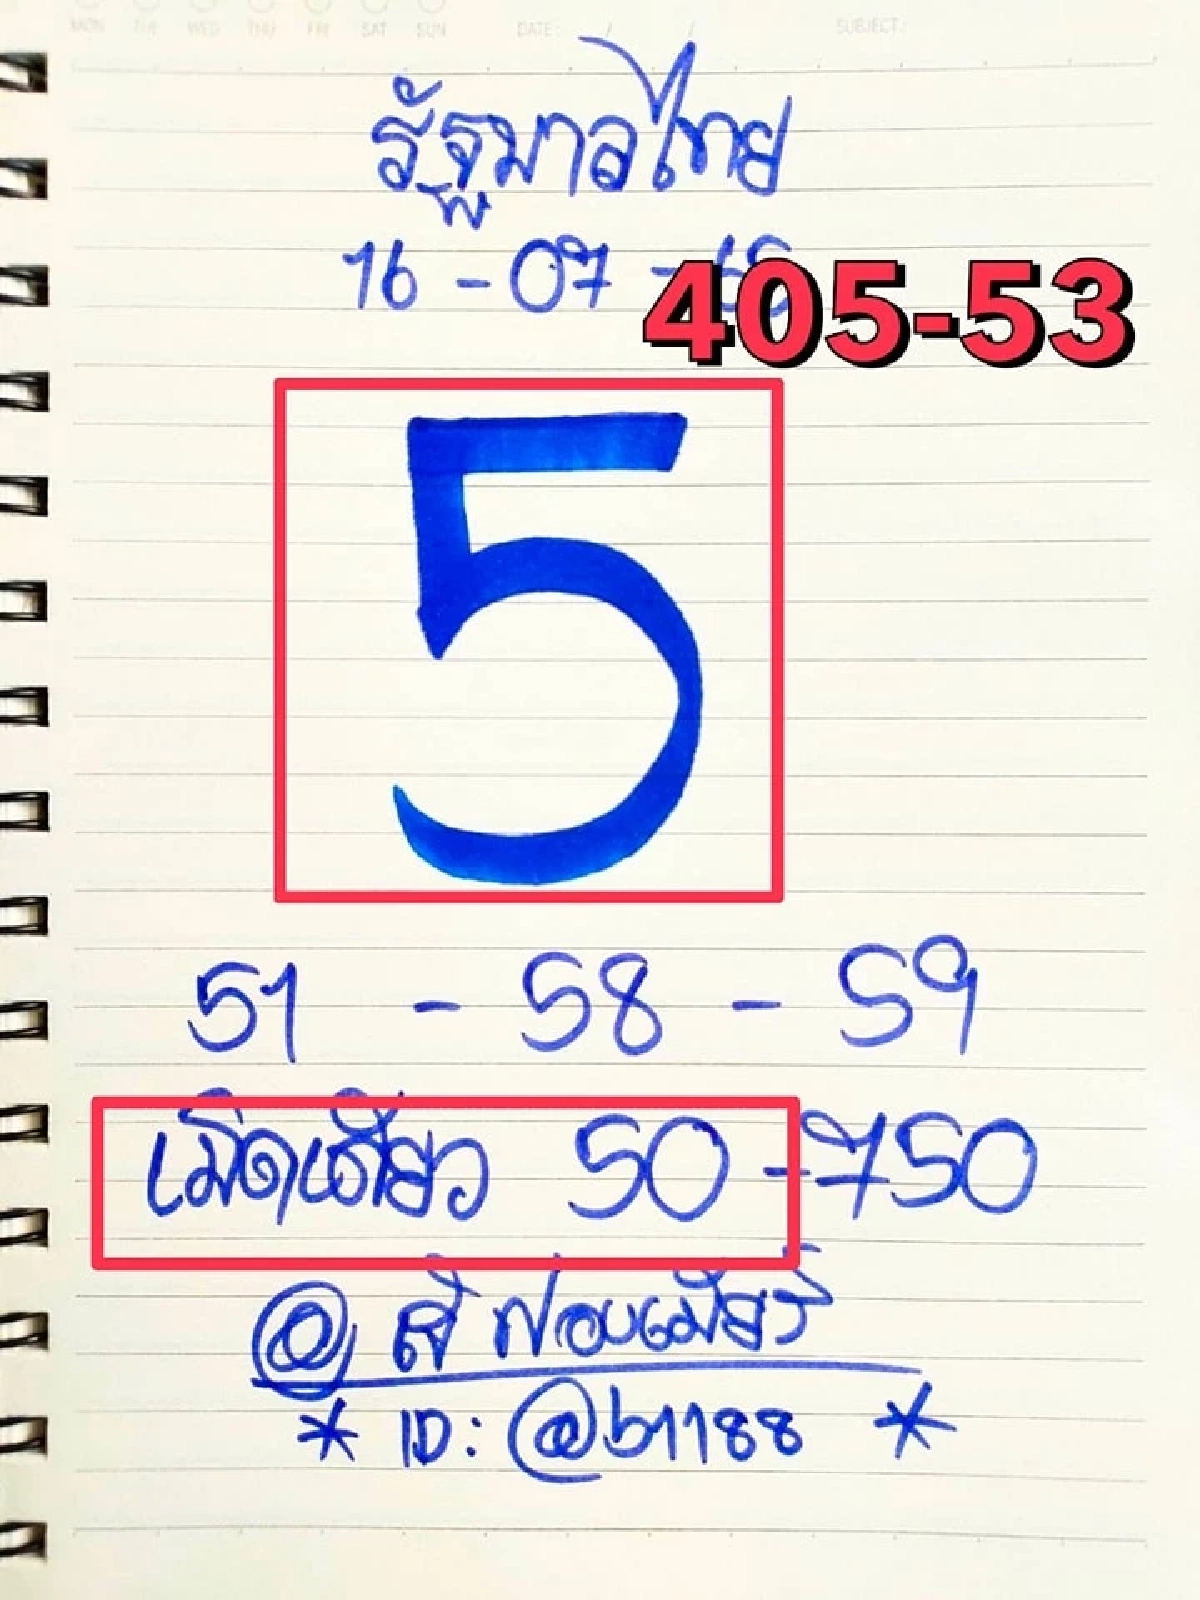 MON TUE WED THU FRI SAT SUN DATE: / / SUBJECT:
รัฐบาลไทย
16 - 07 - 65
405-53
5
51 - 58 - 59
เม็ดเดียว 50 - 750
@
* ID: @b1188 *